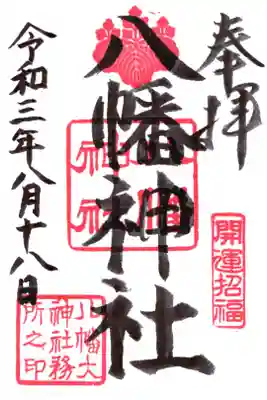 奉拝
開運招福
八幡神社
神社
令和三年八月十八日
八幡大
神社務
所之印